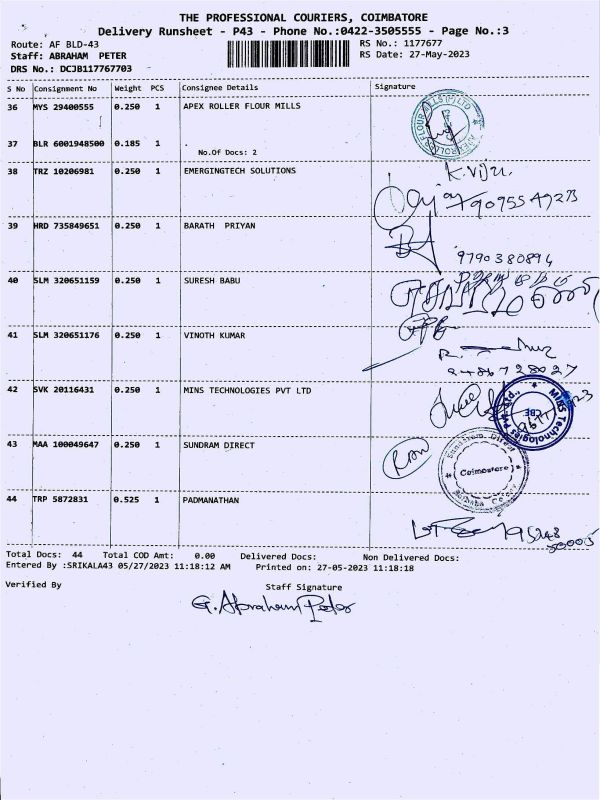 THE PROFESSIONAL COURIERS, COIMBATORE
Delivery Runsheet - P43 - Phone No.:0422-3505555 - Page No.:3
Route: AF BLD-43 RS No.: 1177677
Staff: ABRAHAM PETER RS Date: 27-May-2023
DRS No.: DCJB117767703
S No Consignment No Weight PCS Consignee Details Signature
36 MYS 29400555 0.250 1 APEX ROLLER FLOUR MILLS
37 BLR 6001948500 0.185 1 .
No.Of Docs: 2
38 TRZ 10206981 0.250 1 EMERGINGTECH SOLUTIONS
K. Viju.
39 HRD 735849651 0.250 1 BARATH PRIYAN
9790380894
40 SLM 320651159 0.250 1 SURESH BABU
41 SLM 320651176 0.250 1 VINOTH KUMAR
9486728027
42 SVK 20116431 0.250 1 MINS TECHNOLOGIES PVT LTD
MINS Technologies Pvt. Ltd., CBE
43 MAA 100049647 0.250 1 SUNDRAM DIRECT
Sundram Direct Coimbatore
44 TRP 5872831 0.525 1 PADMANATHAN
Total Docs: 44 Total COD Amt: 0.00 Delivered Docs: Non Delivered Docs:
Entered By :SRIKALA43 05/27/2023 11:18:12 AM Printed on: 27-05-2023 11:18:18
Verified By Staff Signature
G. Abraham Peter